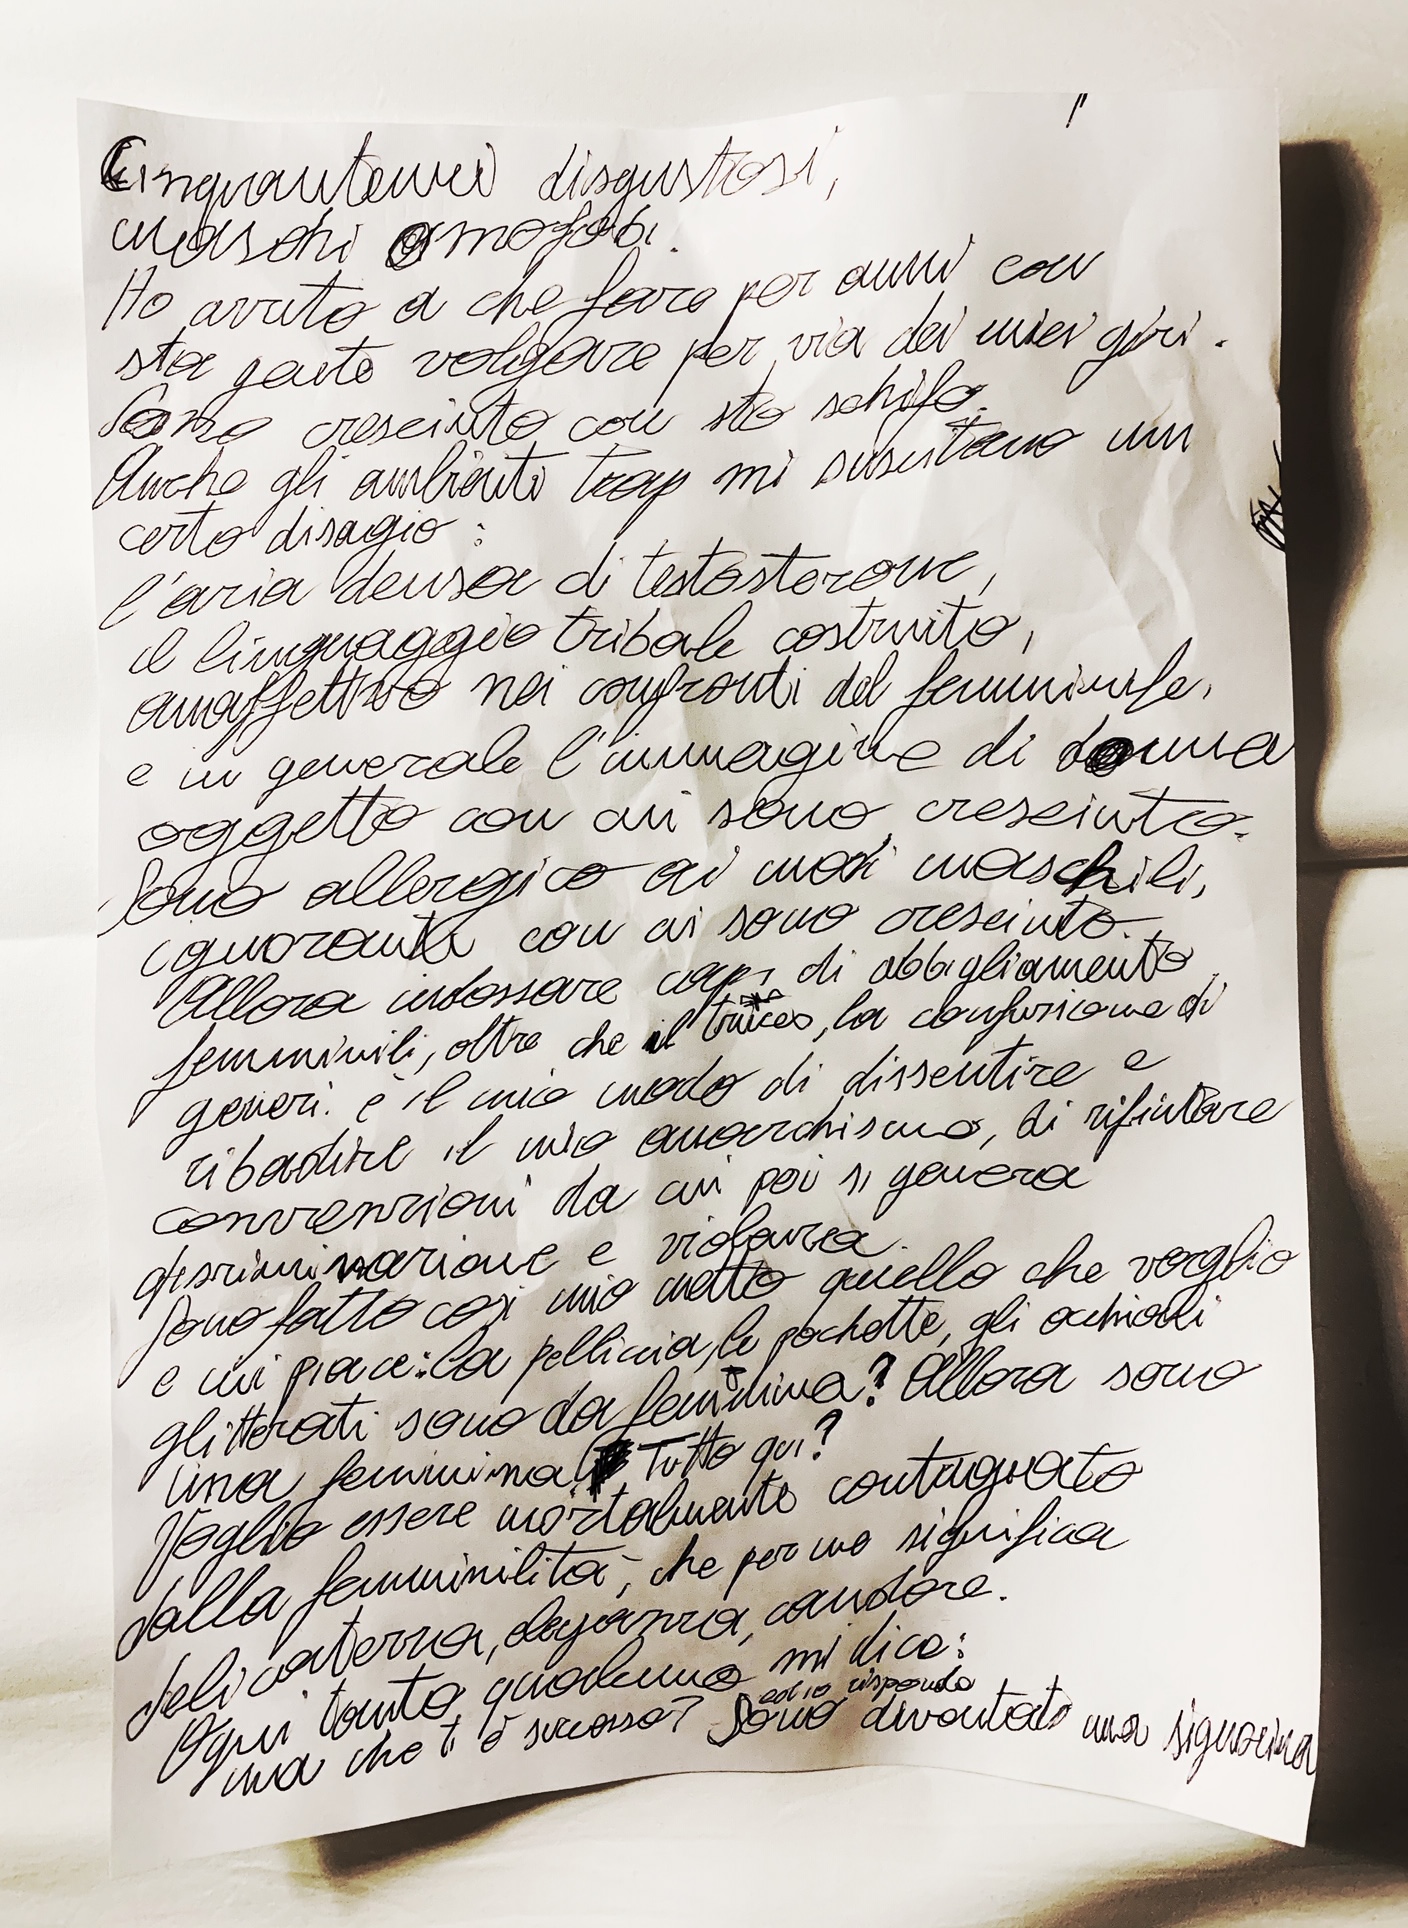 Cinquantenni disgustosi,
maschi omofobi.
Ho avuto a che fare per anni con
sta gente volgare per via dei miei giri.
Sono cresciuto con sto schifo.
Anche gli ambienti trap mi suscitano un
certo disagio:
l'aria densa di testosterone,
il linguaggio tribale costruito,
anaffettivo nei confronti del femminile,
e in generale l'immagine di donna
oggetto con cui sono cresciuto.
Sono allergico ai modi maschili,
ignoranti con cui sono cresciuto.
Allora indossare capi di abbigliamento
femminili, oltre che il trucco, la confusione di
generi è il mio modo di dissentire e
ribadire il mio anarchismo, di rifiutare
convenzioni da cui poi si genera
discriminazione e violenza.
Sono fatto così mio metto quello che voglio
e mi piace: la pelliccia, la pochette, gli occhiali
glitterati sono da femmina? Allora sono
una femmina. Tutto qui?
Voglio essere mortalmente contagiato
dalla femminilità, che per me significa
delicatezza, eleganza, candore.
Ogni tanto qualcuno mi dice:
ed io rispondo
ma che ti è successo? Sono diventato una signorina